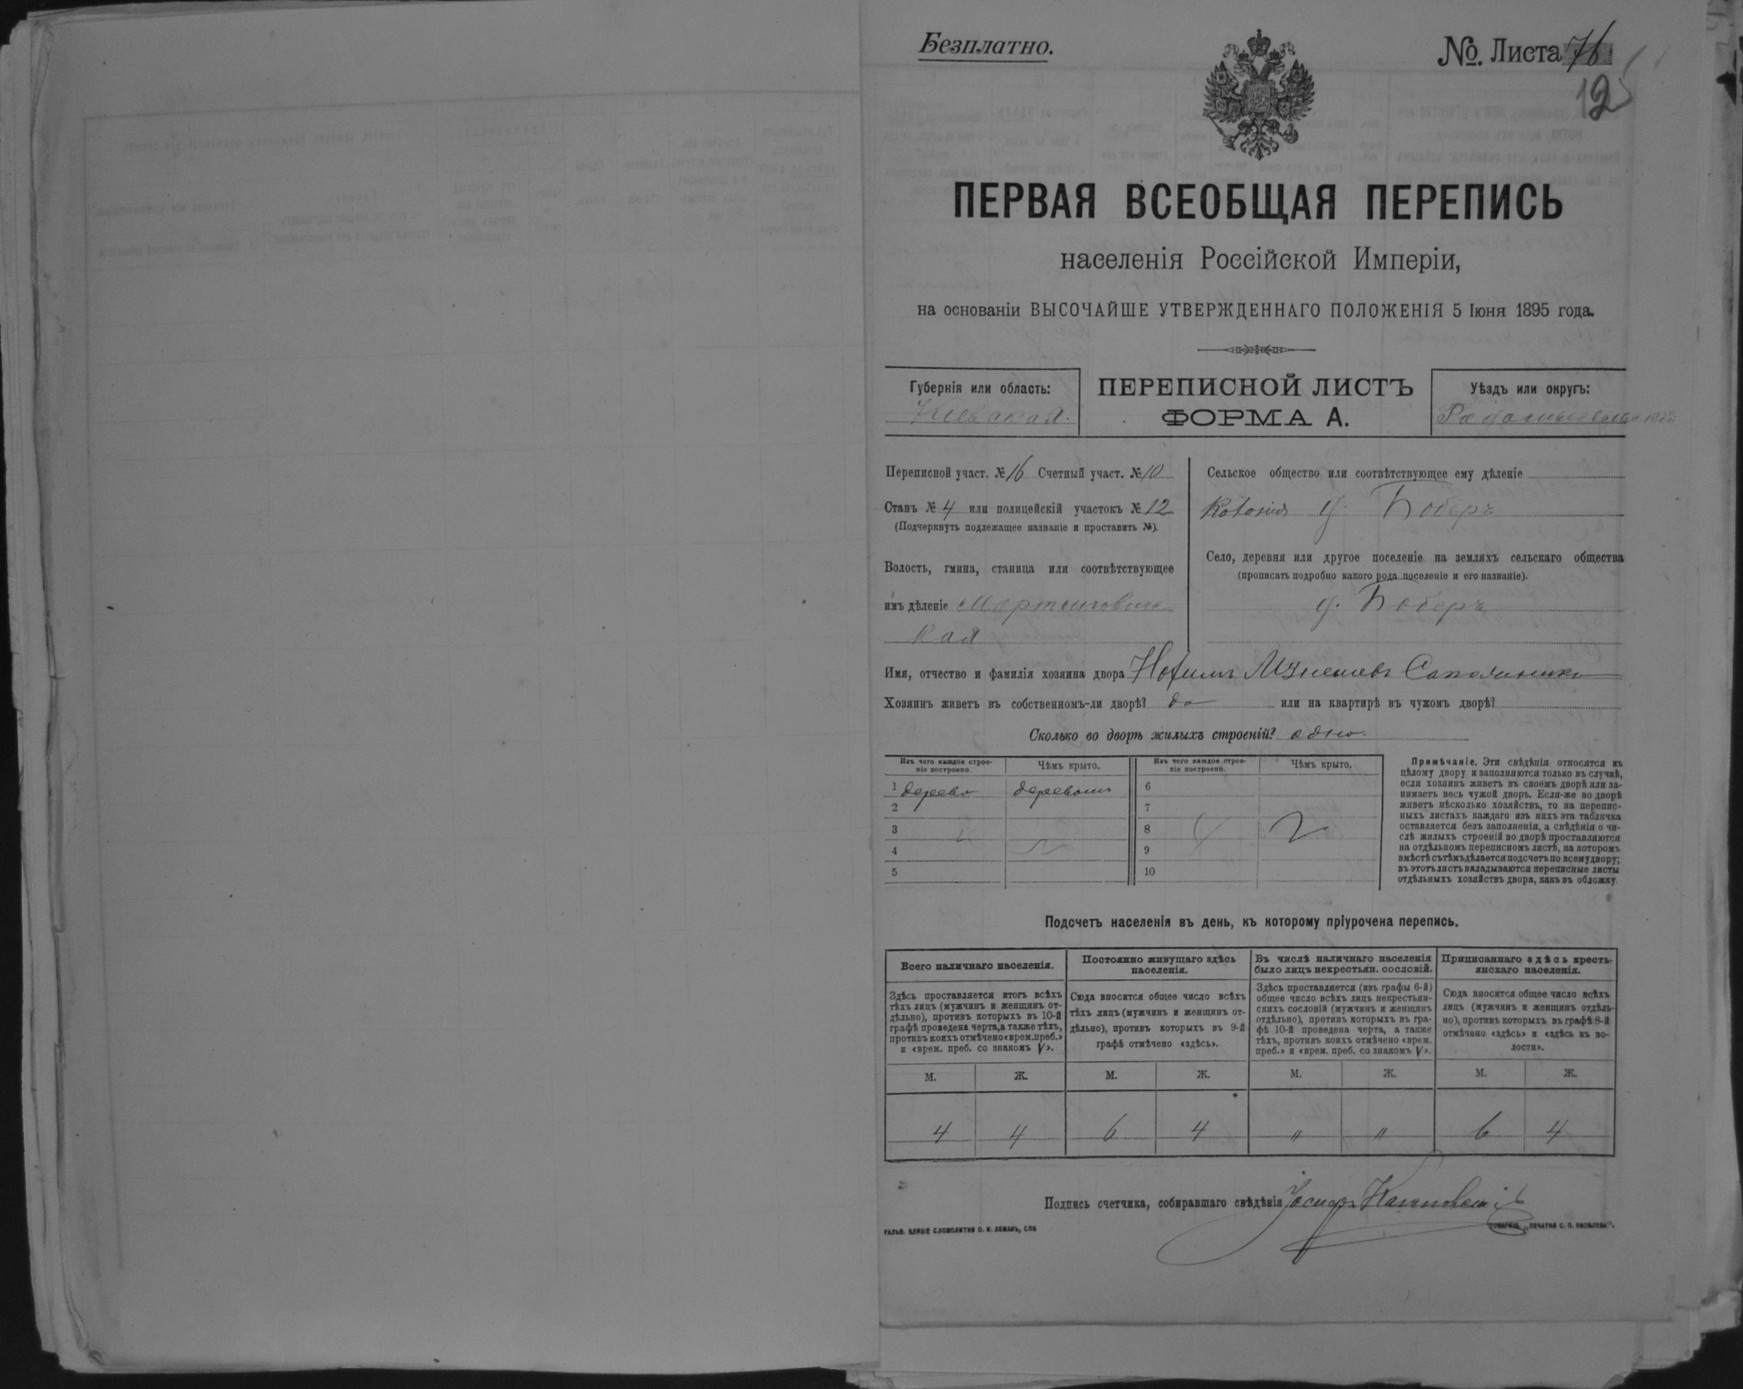 Безплатно.
№. Листа 76
12
ПЕРВАЯ ВСЕОБЩАЯ ПЕРЕПИСЬ
населенія Россійской Имперіи,
на основаніи ВЫСОЧАЙШЕ УТВЕРЖДЕННАГО ПОЛОЖЕНІЯ 5 Іюня 1895 года.
Губернія или область:
Кіевская.
ПЕРЕПИСНОЙ ЛИСТЪ
ФОРМА А.
Уѣздъ или округъ:
Переписной участ. № 16 Счетный участ. № 10
Станъ № 4 или полицейскій участокъ № 12
(Подчеркнуть подлежащее названіе и проставить №).
Волость, гмина, станица или соотвѣтствующее
имъ дѣленіе Мартинович
кая
Сельское общество или соотвѣтствующее ему дѣленіе
Колонія д. Боберъ
Село, деревня или другое поселеніе на земляхъ сельскаго общества
(прописать подробно какого рода поселеніе и его названіе).
д. Боберъ
Имя, отчество и фамилія хозяина двора
Хозяинъ живетъ въ собственномъ-ли дворѣ? да или на квартирѣ въ чужомъ дворѣ?
Сколько во дворѣ жилыхъ строеній? одно.
Изъ чего каждое строе-
ніе построено.
Чѣмъ крыто.
Изъ чего каждое строе-
ніе построено.
Чѣмъ крыто.
1 дерево деревомъ 6
2 7
3 8
4 9
5 10
Примѣчаніе. Эти свѣдѣнія относятся къ
цѣлому двору и заполняются только въ случаѣ,
если хозяинъ живетъ въ своемъ дворѣ или за-
нимаетъ весь чужой дворъ. Если-же во дворѣ
живетъ нѣсколько хозяйствъ, то на перепис-
ныхъ листахъ каждаго изъ нихъ эта табличка
оставляется безъ заполненія, а свѣдѣнія о чи-
слѣ жилыхъ строеній во дворѣ проставляются
на отдѣльномъ переписномъ листѣ, на которомъ
вмѣстѣ съ тѣмъ дѣлается подсчетъ по всему двору;
въ этотъ листъ вкладываются переписные листы
отдѣльныхъ хозяйствъ двора, какъ въ обложку.
Подсчетъ населенія въ день, къ которому пріурочена перепись.
Всего наличнаго населенія.
Здѣсь проставляется итогъ всѣхъ
тѣхъ лицъ (мужчинъ и женщинъ от-
дѣльно), противъ которыхъ въ 10-й
графѣ проведена черта, а также тѣхъ,
противъ коихъ отмѣчено «врем. преб.»
и «врем. преб. со знакомъ V».
Постоянно живущаго здѣсь
населенія.
Сюда вносится общее число всѣхъ
тѣхъ лицъ (мужчинъ и женщинъ от-
дѣльно), противъ которыхъ въ 9-й
графѣ отмѣчено «здѣсь».
Въ числѣ наличнаго населенія
было лицъ некрестьян. сословій.
Здѣсь проставляется (изъ графы 6-й)
общее число всѣхъ лицъ некрестьян-
скихъ сословій (мужчинъ и женщинъ
отдѣльно), противъ которыхъ въ гра-
фѣ 10-й проведена черта, а также
тѣхъ, противъ коихъ отмѣчено «врем.
преб.» и «врем. преб. со знакомъ V».
Приписаннаго здѣсь кресть-
янскаго населенія.
Сюда вносится общее число всѣхъ
лицъ (мужчинъ и женщинъ отдѣль-
но), противъ которыхъ въ графѣ 8-й
отмѣчено «здѣсь» и «здѣсь въ во-
лости».
М. Ж. М. Ж. М. Ж. М. Ж.
4 4 6 4 " " 6 4
Подпись счетчика, собиравшаго свѣдѣнія Іосифъ
ГАЛЬВ. КЛИШЕ СЛОВОЛИТНИ О. И. ЛЕМАНЪ, СПБ.
ТОВАРИЩ. „ПЕЧАТНЯ С. П. ЯКОВЛЕВА".